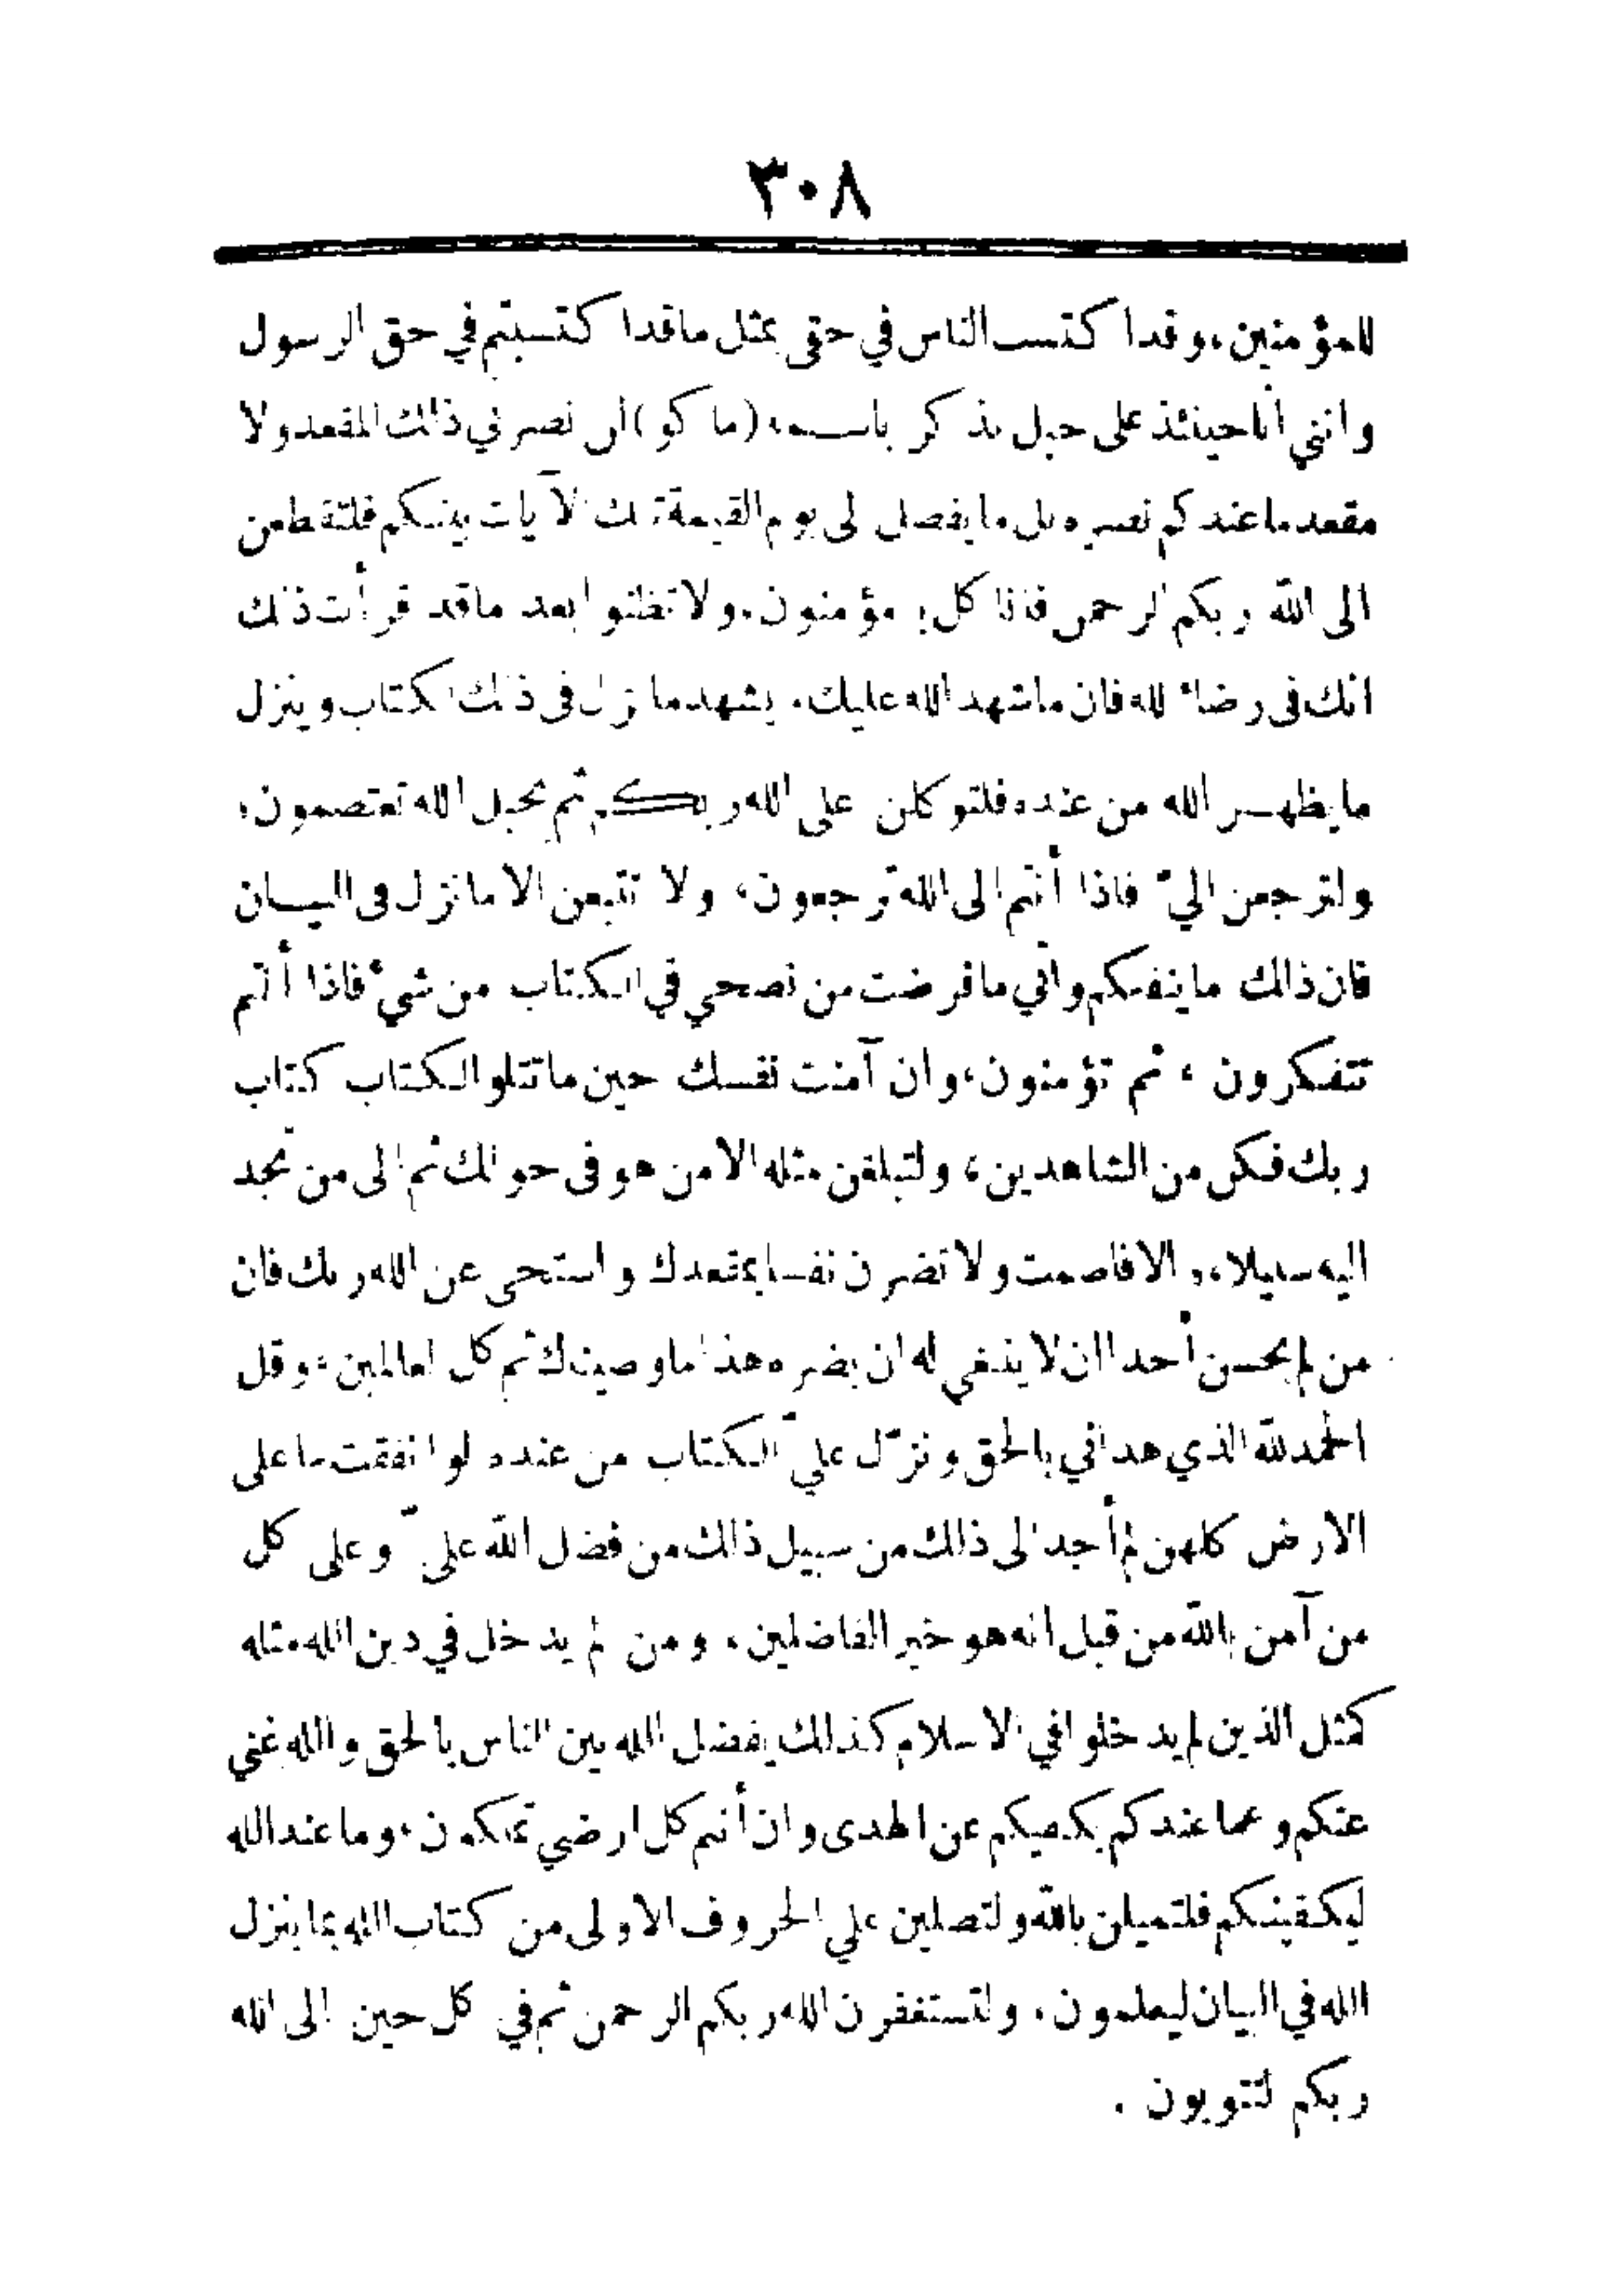 ٣٠٨
للمؤمنين، وقد اكتسب الناس في حقي بمثل ما قد اكتسبتم في حق الرسول
وانني أنا حينئذ على جبل يذكر باسمه (ماكو) لن نصرني ذلك المقعد ولا
مقعد ما عندكم نصره بل ما يفصل الى يوم القيمة تلك الآيات بينكم فلتقطعن
الى الله ربكم الرحمن فانا كل به مؤمنون. ولا تظنوا بعد ما قد قرأت ذلك
انك في رضاء الله فان ما شهد الله عليك. يشهد ما نزل في ذلك الكتاب وينزل
ما يظهر الله من عنده فلتوكلن على الله ربكم ثم بحبل الله تعتصمون،
ولترجعن اليّ فاذا أنتم الى الله ترجعون، ولا تتبعن الا ما نزل في البيان
فان ذلك ما ينفعكم واني ما فرضت من نصحي في الكتاب من شيء فاذا أنتم
تتفكرون، ثم تؤمنون، وان آمنت نفسك حين ما تتلو الكتاب كتاب
ربك فكن من الشاهدين، ولتبلغن مثله الا من هو في حولك ثم الى من تجد
اليه سبيلا، والا فاصمت ولا تضرن نفسا بمقعدك واستحي عن الله ربك فان
من لم يحسن أحدا ان لا ينبغي له ان يضره هذا ما وصيناك ثم كل العالمين، وقل
الحمد لله الذي هداني بالحق ونزّل عليّ الكتاب من عنده لو انفقت ما على
الارض كلهن لم أجد الى ذلك من سبيل ذلك من فضل الله عليّ وعلى كل
من آمن بالله من قبل انه هو خير الفاضلين، ومن لم يدخل في دين الله مثله
كمثل الذين لم يدخلوا في الاسلام كذلك يفضل الله بين الناس بالحق والله غني
عنكم وعما عندكم يكفيكم عن الهدى وان أنتم كل ارضي تملكون، وما عند الله
ليكفينكم فلتميلن بالله ولتصلين علي الحروف الاولى من كتاب الله بما ينزل
الله في البيان ليعلمون. ولتستغفرن الله ربكم الرحمن ثم في كل حين الى الله
ربكم لتتوبون.